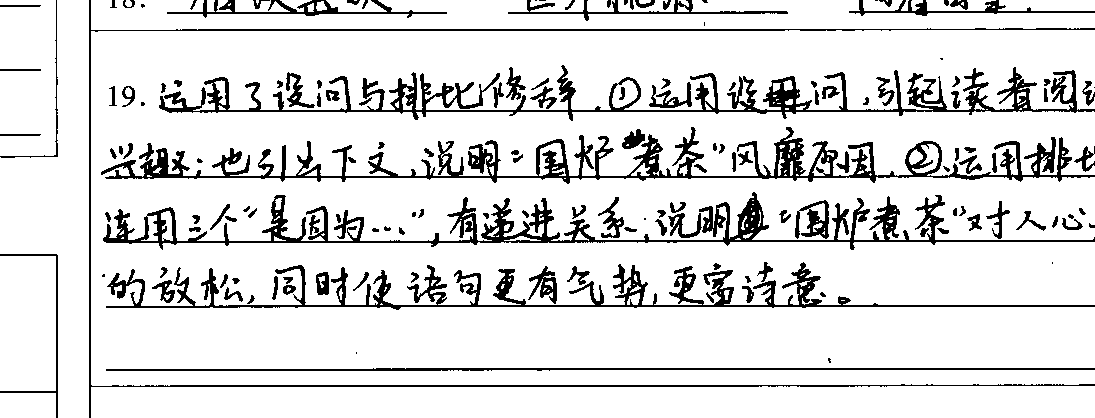 18.
19. 运用了设问与排比修辞.①运用设问,引起读者阅
兴趣;也引出下文,说明“围炉煮茶”风靡原因.②运用排比
连用三个“是因为...”,有递进关系,说明“围炉煮茶”对人心
的放松,同时使语句更有气势,更富诗意。